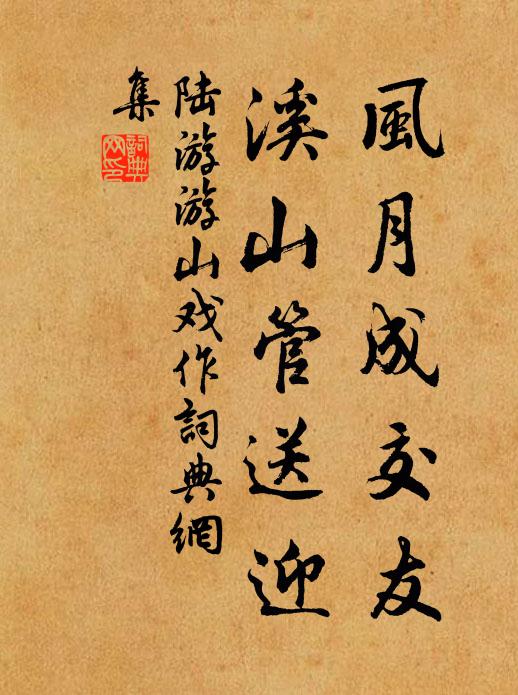 風月成交友
溪山管送迎
陆游游山戏作詞典網
集
詞典
网印